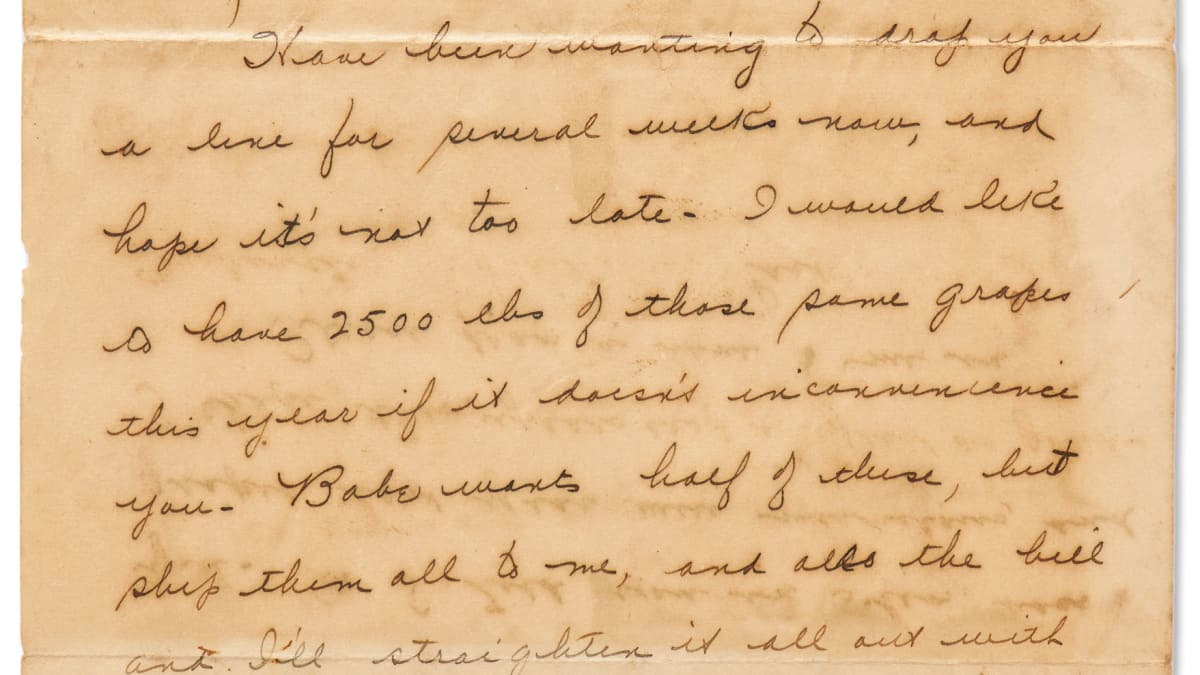 Have been wanting to drop you
a line for several weeks now, and
hope it's not too late - I would like
to have 2500 lbs of those same grapes
this year if it doesn't inconvenience
you - Babe wants half of these, but
ship them all to me, and also the bill
and I'll straighten it all out with